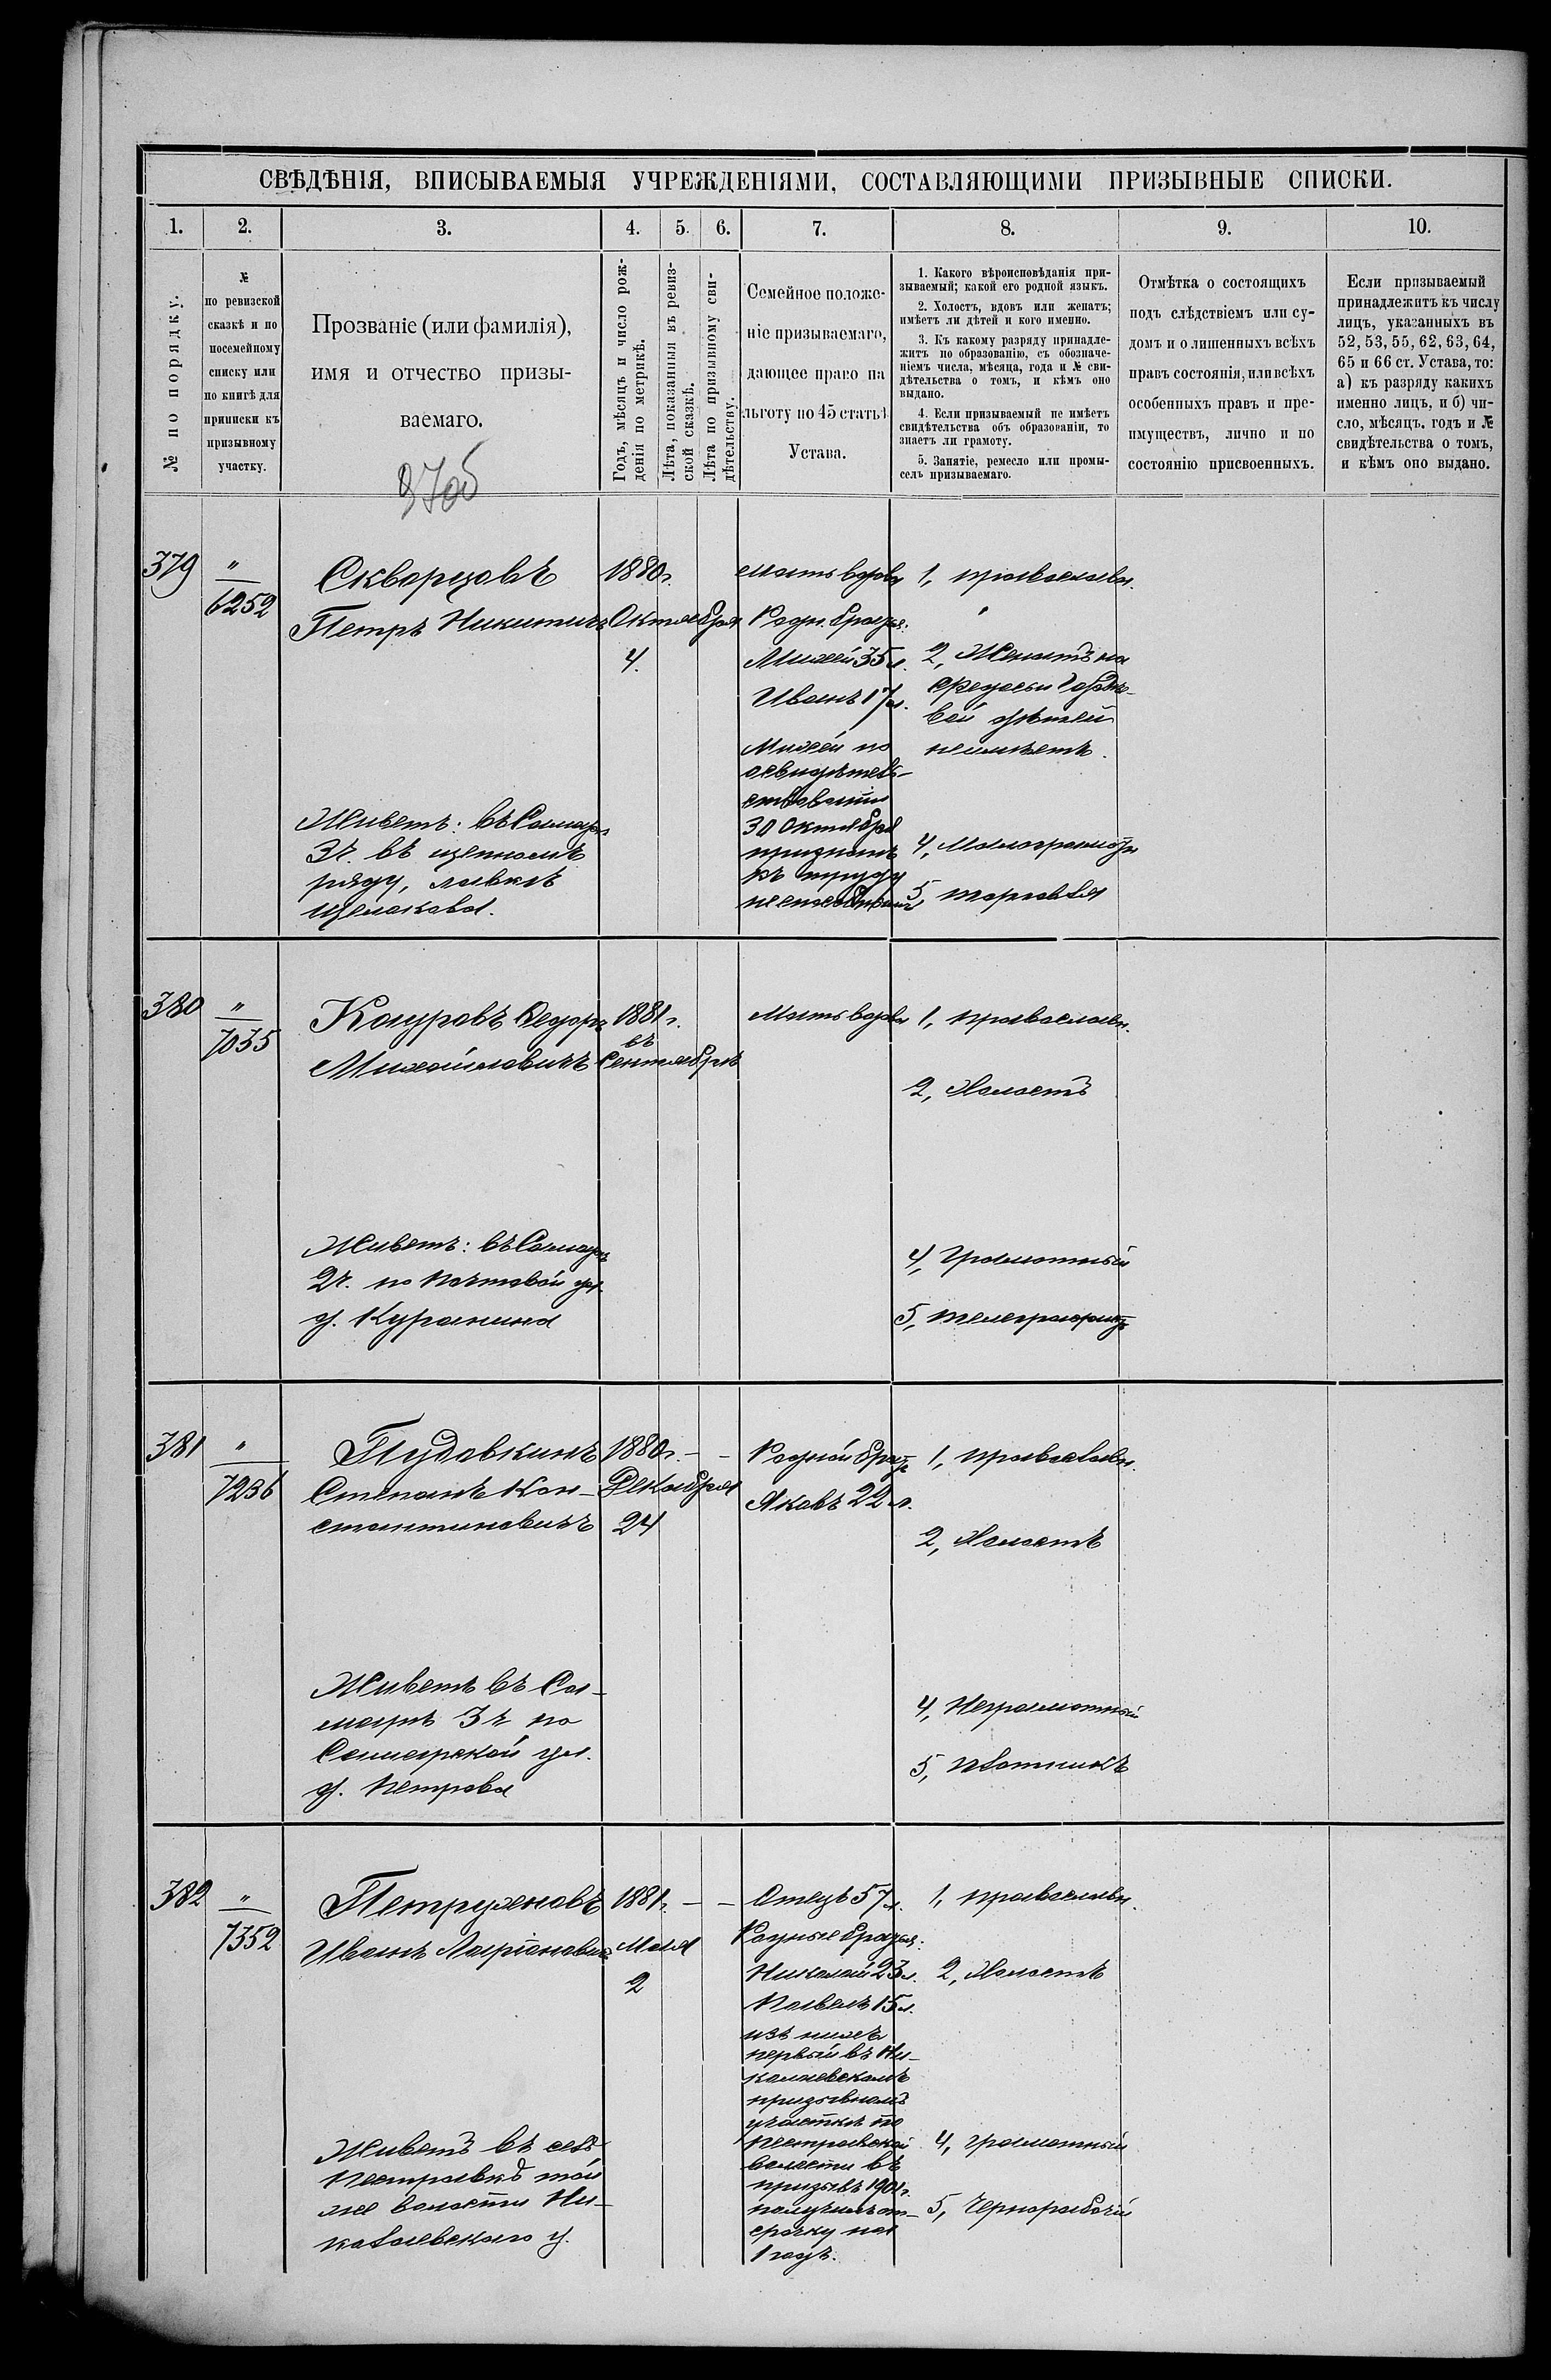 СВѢДѢНІЯ, ВПИСЫВАЕМЫЯ УЧРЕЖДЕНІЯМИ, СОСТАВЛЯЮЩИМИ ПРИЗЫВНЫЕ СПИСКИ.
1. 2. 3. 4. 5. 6. 7. 8. 9. 10.
№ по порядку.
№
по ревизской
сказкѣ и по
посемейному
списку или
по книгѣ для
приписки къ
призывному
участку.
Прозваніе (или фамилія),
имя и отчество призы-
ваемаго.
Годъ, мѣсяцъ и число рож-
денія по метрикѣ.
Лѣта, показанныя въ ревиз-
ской сказкѣ.
Лѣта по призывному сви-
дѣтельству.
Семейное положе-
ніе призываемаго,
дающее право на
льготу по 45 статьѣ
Устава.
1. Какого вѣроисповѣданія при-
зываемый; какой его родной языкъ.
2. Холостъ, вдовъ или женатъ;
имѣетъ ли дѣтей и кого именно.
3. Къ какому разряду принадле-
житъ по образованію, съ обозначе-
ніемъ числа, мѣсяца, года и № сви-
дѣтельства о томъ, и кѣмъ оно
выдано.
4. Если призываемый не имѣетъ
свидѣтельства объ образованіи, то
знаетъ ли грамоту.
5. Занятіе, ремесло или промы-
селъ призываемаго.
Отмѣтка о состоящихъ
подъ слѣдствіемъ или су-
домъ и о лишенныхъ всѣхъ
правъ состоянія, или всѣхъ
особенныхъ правъ и пре-
имуществъ, лично и по
состоянію присвоенныхъ.
Если призываемый
принадлежитъ къ числу
лицъ, указанныхъ въ
52, 53, 55, 62, 63, 64,
65 и 66 ст. Устава, то:
а) къ разряду какихъ
именно лицъ, и б) чи-
сло, мѣсяцъ, годъ и №
свидѣтельства о томъ,
и кѣмъ оно выдано.
379
"
6252
Скворцовъ
Петръ Никитичъ
Живетъ: въ Самарѣ
3 ч. въ щепномъ
ряду, лавкѣ
1880 г.
Октября
4.
мать вдова
Родн. братья:
Михей 35 л.
Иванъ 17 л.
Михей по
освидѣтель-
ствованіи
30 Октября
признанъ
къ труду
неспособнымъ
1, православн.
2, Женатъ на
дѣтей
не имѣетъ.
4, Малограмотн
5, торговля
380
"
7035
Кауровъ Федоръ
Михайловичъ
Живетъ: въ Самарѣ
2 ч. по Почтовой ул.
д. Куранина
1881 г.
въ
Сентябрѣ
Мать вдова
1, православн.
2, Холостъ
4, Грамотный
5, телеграфистъ
381
"
7236
Пудовкинъ
Степанъ Кон-
стантиновичъ
Живетъ въ Са-
марѣ 3 ч по
Самарской ул.
д. Петрова
1880 г. - -
Декабря
24
Родной братъ
Яковъ 22 л.
1, православн.
2, Холостъ
4, Неграмотный
5, плотникъ
382
"
7352
Петрухновъ
Иванъ Ларіоновичъ
Живетъ въ селѣ
Пестравкѣ той
же волости Ни-
колаевскаго у.
1881 г. - -
Мая
2
Отецъ 57 л.
Родные братья:
Николай 23 л.
Павелъ 15 л.
изъ нихъ
первый въ Ни-
колаевскомъ
призывномъ
участкѣ по
Пестравской
волости въ
призывъ 1901 г.
получилъ от-
срочку на
1 годъ.
1, православн.
2, Холостъ
4, грамотный
5, Чернорабочій